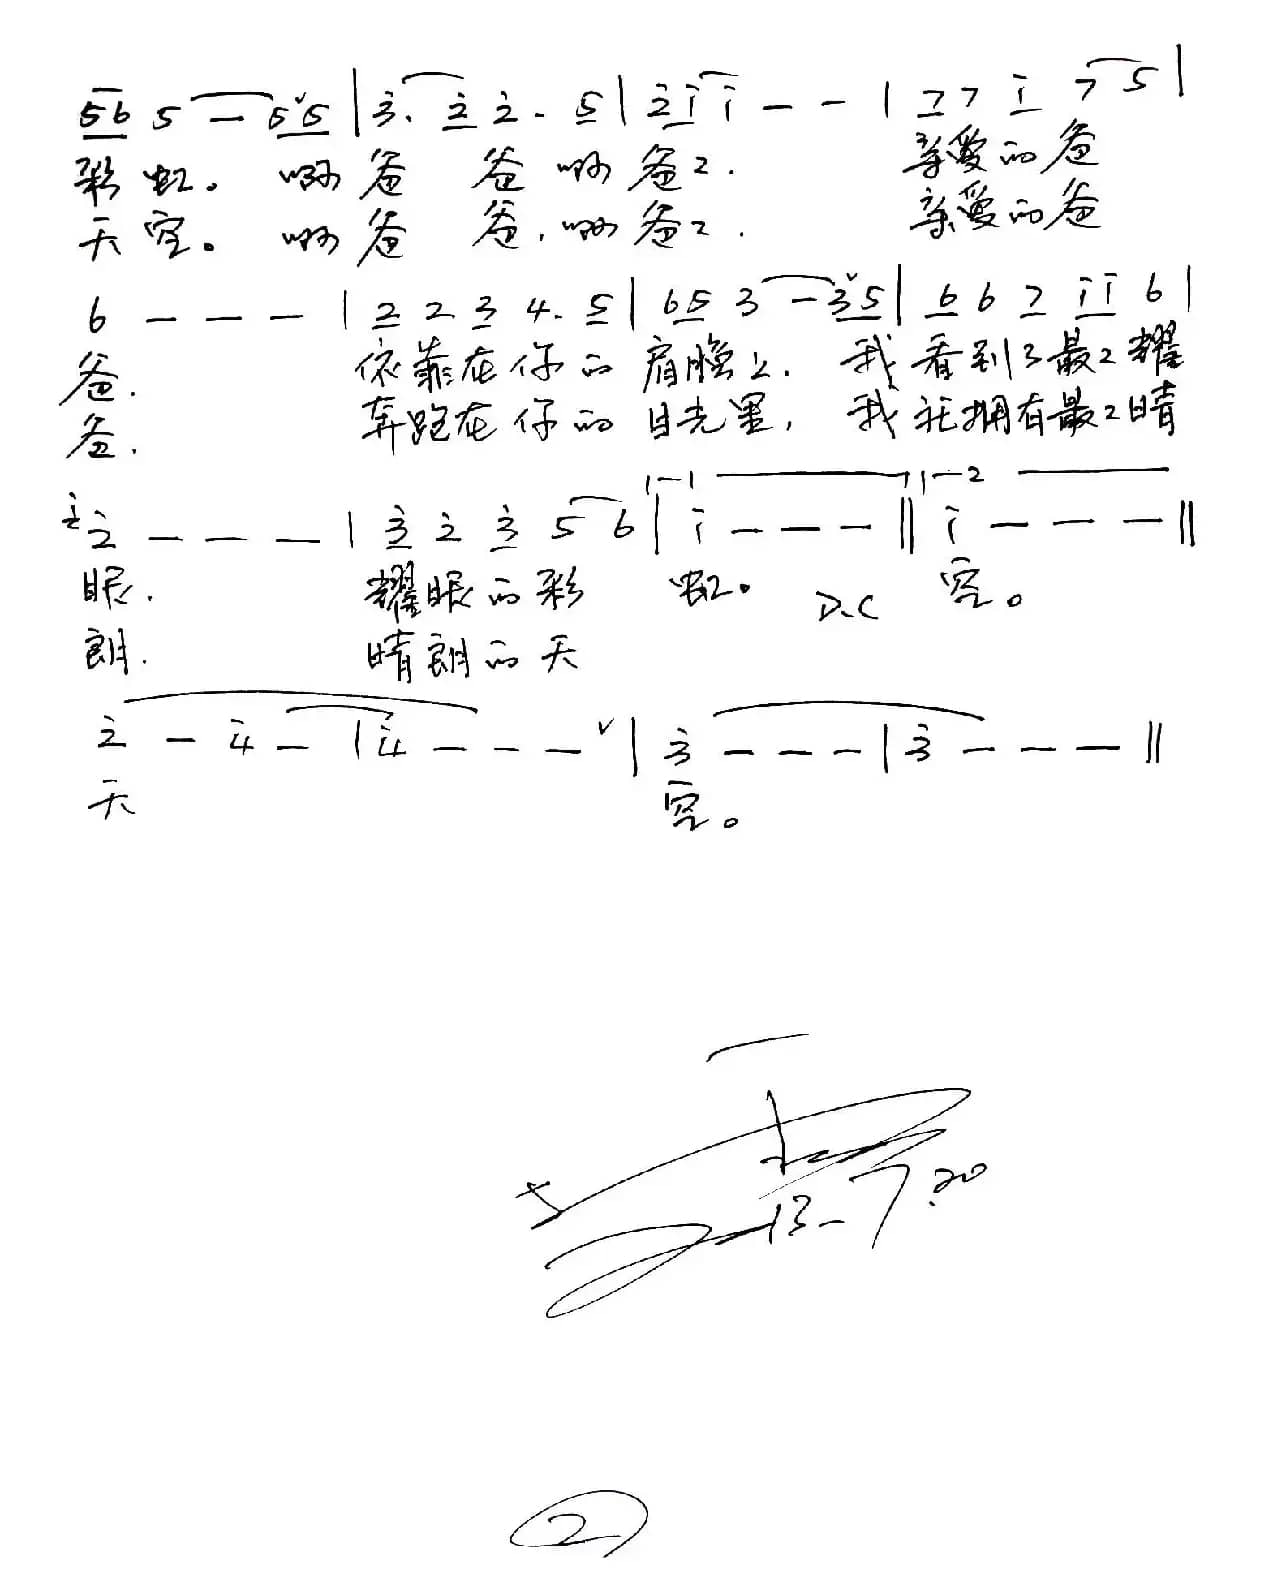 56 5 — 5 5 | 3. 2 2. 5 | 2 1 1 — — | 7 7 1 7 5 |
彩虹。 啊爸 爸啊爸2. 亲爱的爸
天空。 啊爸 爸,啊爸2. 亲爱的爸
6 — — — | 2 2 3 4. 5 | 65 3 — 35 | 6 6 7 11 6 |
爸. 依靠在你的肩膀上. 我看到了最2耀
爸. 奔跑在你的目光里, 我就拥有最2晴
2 2 — — — | 3 2 3 5 6 | 1 — — — || 1 — — — ||
眼. 耀眼的彩 虹。 D.C 空。
朗. 晴朗的天
2 — 4 — | 4 — — — ∨ | 3 — — — | 3 — — — ||
天 空。
13-7.20
2